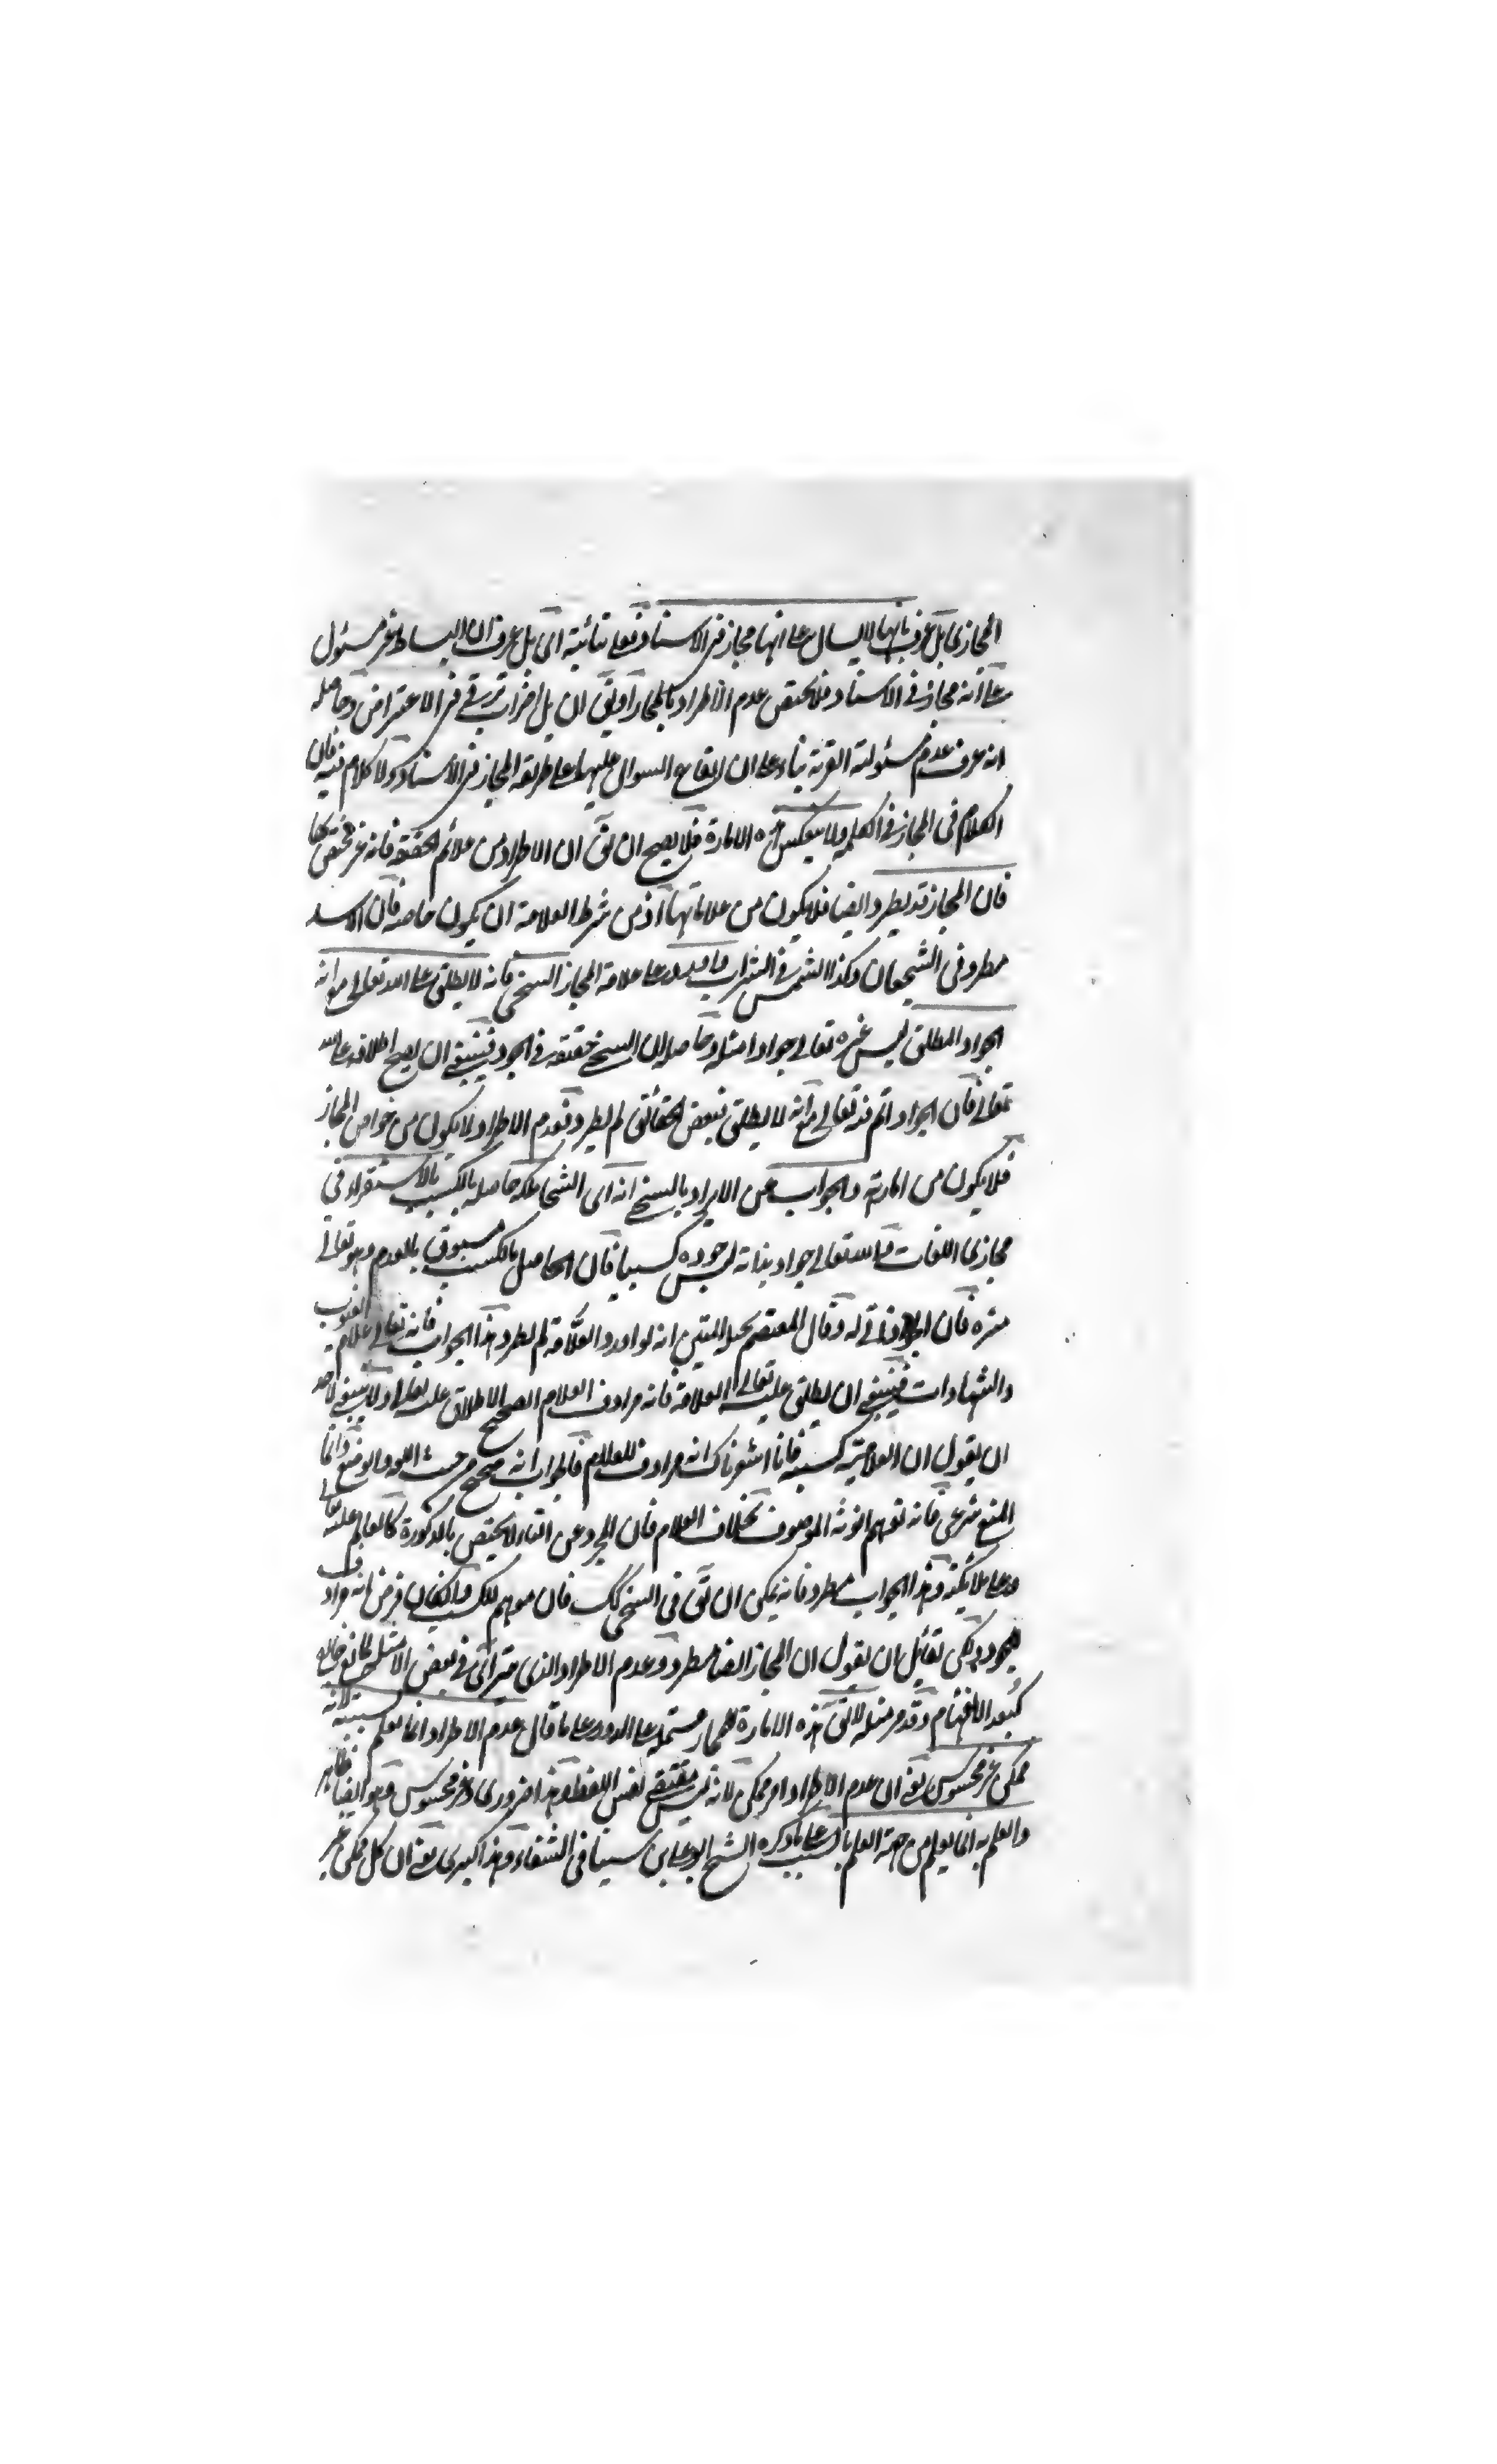 المجازي بل عرف بانها لا يسال على انها مجاز في الاسناد فعلى تنائية اى بل عرف ان البساط غير مسئول
على انه مجاز في الاسناد فلا يختص عدم الاطراد بالمجاز او يق ان بل اضراب ترقي في الاعتراض وحاصله
انه عرف عدم مسئولية القرية بناء على ان ايقاع السوال عليها على طريقة المجاز في الاسناد ولا كلام فيه فان
الكلام في المجاز في الكلمة ولا ينعكس هذه الامارة فلا يصح ان يق ان الاطراد من علائم الحقيقة فانه غير مختص بها
فان المجاز قد يطرد ايضا فلا يكون من علاماتها اذ من شرط العلامة ان يكون خاصه فان الاسد
مطرد في الشجعان وكذا الشمس في الشراب واورد على علامة المجاز السخي فانه لا يطلق على الله تعالى مع انه
الجواد المطلق ليس غيره تعالى جوادا مثله وحاصله ان السخي حقيقة في الجود فينبغي ان يصح اطلاقه على الله
تعالى فان الجواد اتم فيه تعالى مع انه لا يطلق فبعض الحقائق لم يطرد فعدم الاطراد لا يكون من خواص المجاز
فلا يكون من امارته والجواب عن الايراد بالسخي انه اى السخا ملكه حاصله بالكسب بالاستقراء في
مجازى اللغات والله تعالى جواد بذاته ليس جوده كسبيا فان الحاصل بالكسب مسبوق بالعدم وهو تعالى
منزه فان الجود ذاتى له وقال المعتصم بحبله المتين انه لو اورد والعلامة لم يطرد هذا الجواب فانه تعالى علام الغيوب
والشهادات فينبغي ان يطلق عليه تعالى العلامة فانه مرادف العلام الصحيح الاطلاق عليه تعالى ولا ينبغي لاحد
ان يقول ان العلامية كسبية فانا اشعرناك انه مرادف للعلام فالجواب انه صحيح من حيث اللغه والوضع وانما
المنع شرعى فانه توهم انوثة الموصوف بخلاف العلام فان المجرد عن التاء لا يختص بالذكورة كالعالم عليه تعالى
وعلى ملائكته وهذا الجواب مطرد فانه يمكن ان يق في السخي كك فان موهم للكسب وان كان فرض انه مرادف
للجود ولكن لقائل ان يقول ان المجاز ايضا مطرد وعدم الاطراد الذى يترآى في بعض الامثله لمانع خارج
كبعد الافهام وقد مر مثله لا يق هذه الامارة للمجاز مشتملة على الدور على ما قال عدم الاطراد انما يعلم بسببه لانه
ممكن غير محسوس يعنى ان عدم الاطراد امر ممكن لانه ليس مقتضى نفس اللفظ وهذا ضرورى وغير محسوس وهو ايضا ظاهر
والعلم به انما يعلم من جهة العلم بالسبب على ما ذكره الشيخ ابو على بن سينا في الشفاء وهذا كبرى يعنى ان كل ممكن غير